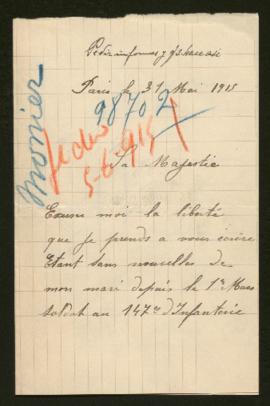 Pedir informes y
Paris le 31 Mai 1915
98702
Monier
5-6-915
Sa Majestie
Excuse moi la liberté
que je prends a vous écrire
Etant sans nouvelles de
mon mari depuis le 1er Mars
soldat au 147me d'Infanterie